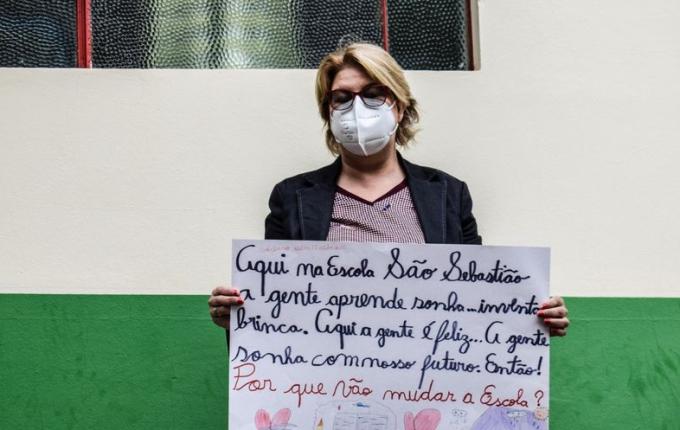 Aqui na Escola São Sebastião
a gente aprende sonha...inventa
brinca. Aqui a gente é feliz... A gente
sonha com nosso futuro. Então!
Por que vão mudar a Escola?